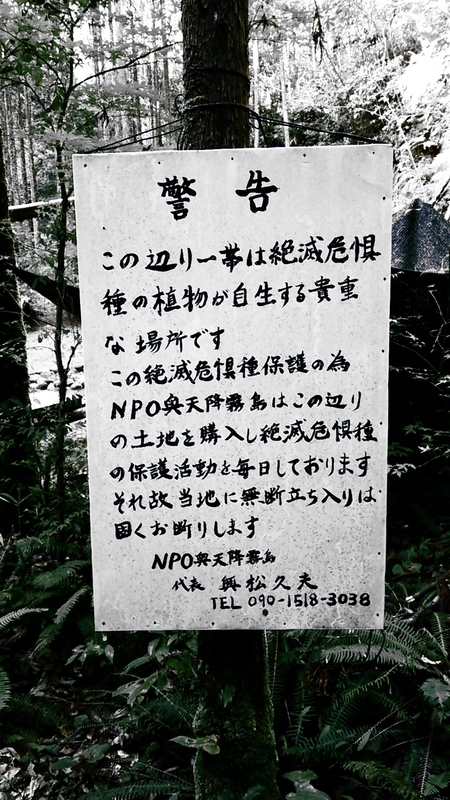 警告
この辺り一帯は絶滅危惧
種の植物が自生する貴重
な場所です
この絶滅危惧種保護の為
NPO奥天降霧島はこの辺り
の土地を購入し絶滅危惧種
の保護活動を毎日しております
それ故当地に無断立ち入りは
固くお断りします
NPO奥天降霧島
代表 奥松久夫
TEL 090-1518-3038